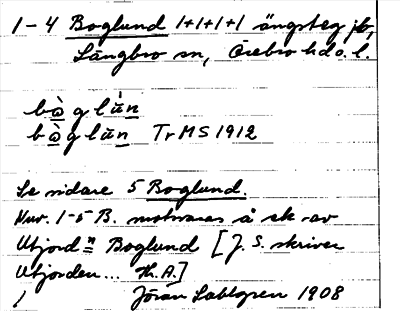 1-4 Boglund 1+1+1+1 ängsteg jb,
Långbro sn, Örebro hd o. l.
bò̱g lu̇̀n
bò̱g lu̇n Tr MS 1912
Se vidare 5 Boglund.
Nuv. 1-5 B. motsvaras å ek av
Utjord n = Boglund [J. S. skriver
Utjorden... Th. A.]
Jöran Sahlgren 1908